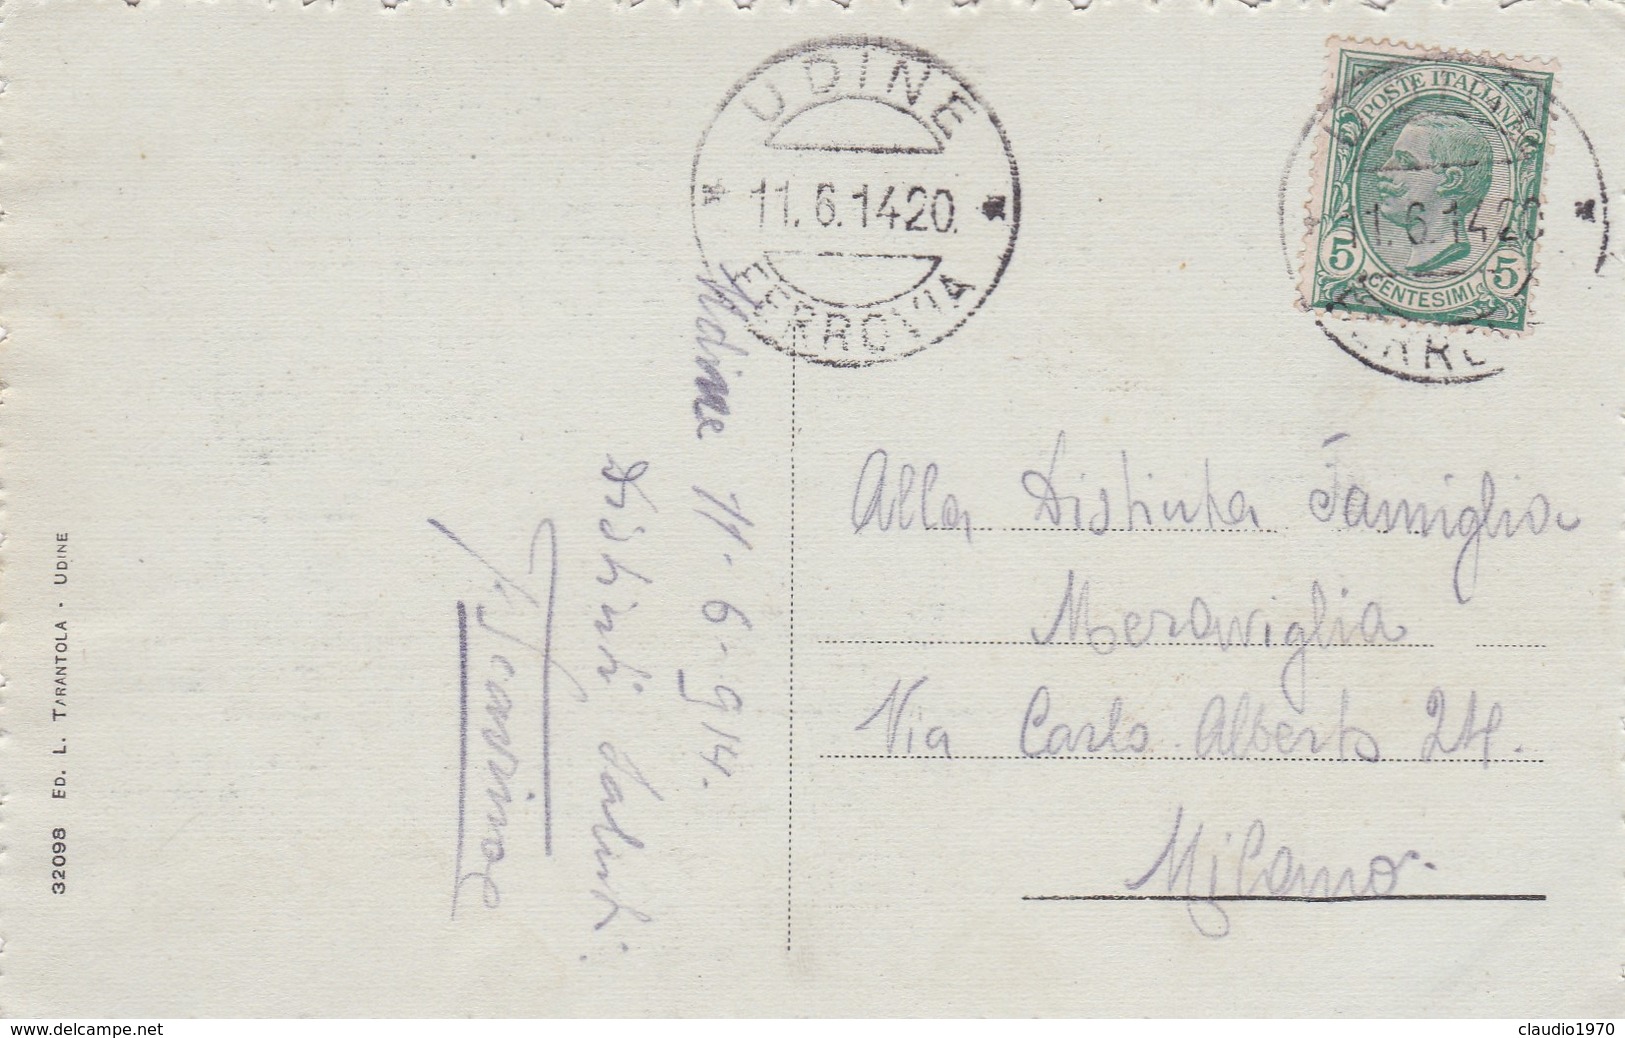 UDINE
11.6.14 20.
FERROVIA
POSTE ITALIANE
11.6.14 20
5 5
CENTESIMI
Udine 11-6-914.
Distinti Saluti.
Alla Distinta Famiglia
Meraviglia
Via Carlo Alberto 24.
Milano
32098 ED. L. TARANTOLA - UDINE
www.delcampe.net
claudio1970